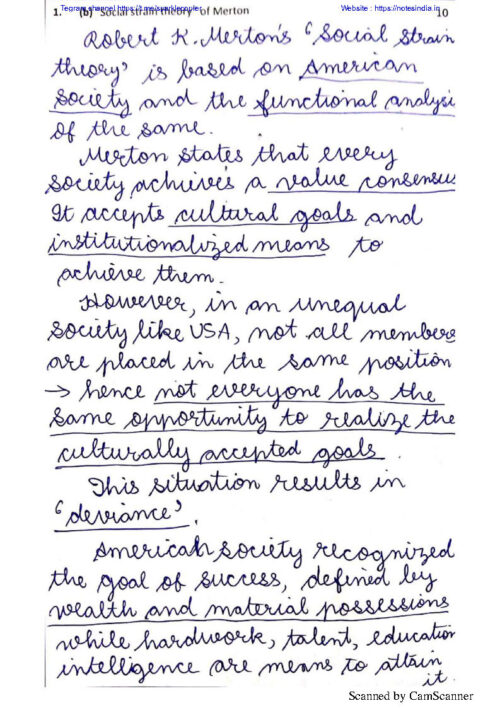 Telegram channel https://t.me/sparklecopier Website : https://notesindia.in
1. (b) "Social strain theory" of Merton 10
Robert K. Merton's 'Social Strain
theory' is based on American
society and the functional analysi
of the same.
Merton states that every
society achieves a value consensus
It accepts cultural goals and
institutionalized means to
achieve them.
However, in an unequal
society like USA, not all members
are placed in the same position
→ hence not everyone has the
same opportunity to realize the
culturally accepted goals.
This situation results in
'deviance'.
American society recognized
the goal of success, defined by
wealth and material possessions
while hardwork, talent, education
intelligence are means to attain
it.
Scanned by CamScanner